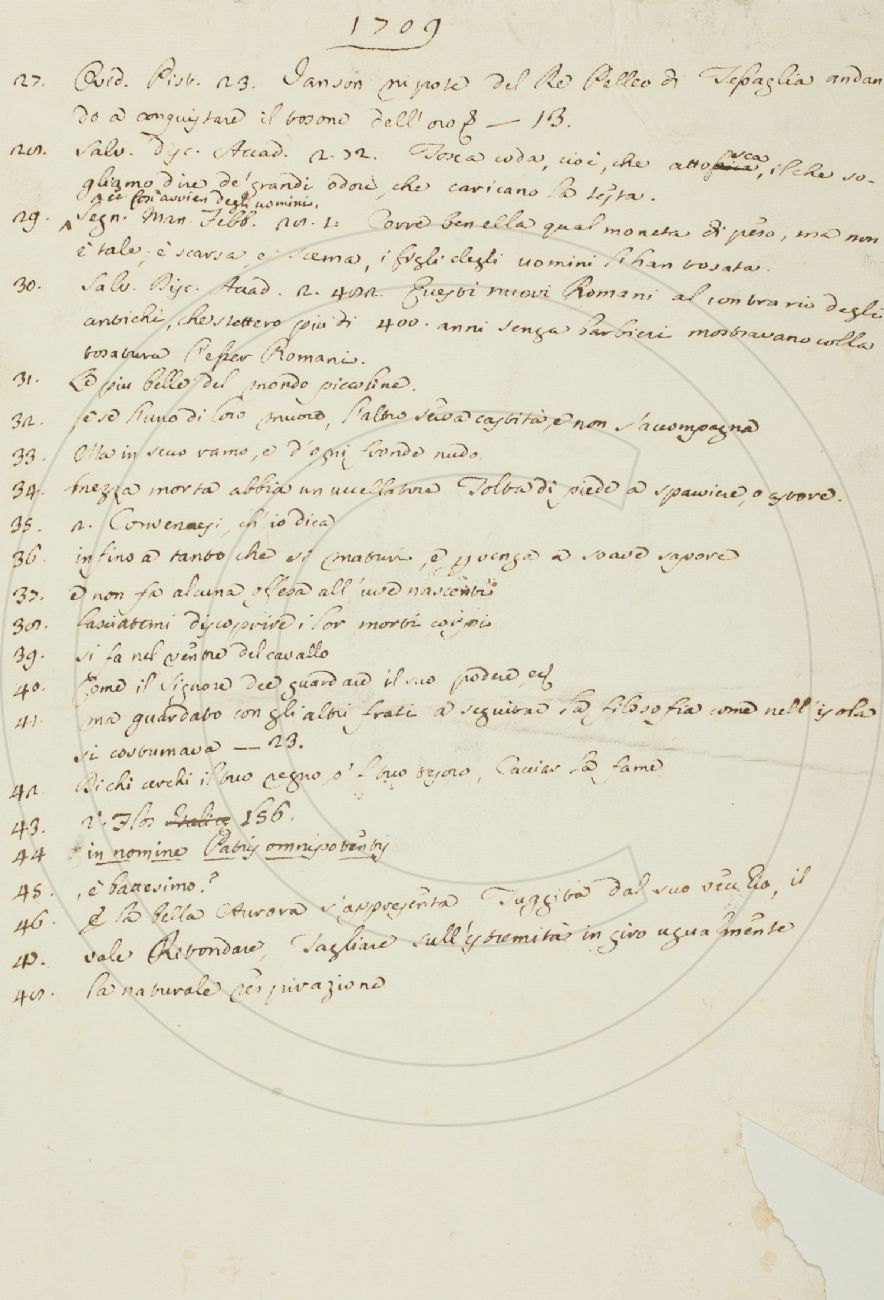 1709
27. Ovid. Pist. 23. Janson nipote del Re Pelleo di Tesaglia andan
do a conquistare il tosone dell'oro — 13.
28. Salv. Disc. Accad. 2. 72. Tosca coda, cioè, che attosca, il che so-
gliamo dire de' grandi odori, che caricano la testa.
et così avvien degli uomini.
29. Segn. Man. Febb. 28. 1. Corre ben ella qual moneta di peso, ma non
è tale; è scarsa, è scema, i figli degli uomini l'han tosata.
30. Salv. Disc. Accad. 2. 482. Questi nuovi Romani al contrario degli
antichi, che stettero più di 400. anni senza barbieri mostravano colla
tosatura l'esser Romani.
31. Le più belle del mondo piccoline.
32. e se l'uno di loro muore, l'altro serva castità, e non s'accompagna
33. Ma in secco ramo, e d'ogni fronde nudo.
34. mezza morta abbia un uccellatore Tolta di piede a sparviere, o astore.
35. 2. Convenesi, ch'io dica
36. infino a tanto che si maturi, e pervenga a soave sapore
37. e non fa alcuna offesa all'uve nascenti
38. lasciatemi discoprire i lor morti corpi
39. si fa nel ventre del cavallo
40. Come il Signore dee guardare il suo podere, ec
41. ma guardato con gli altri frati a seguitar la filosofia come nell'isola
si costumava — 23.
42. Di chi cerchi il tuo regno, o 'l tuo tesoro, Cacciar la fame
43. 2. Flor Italic 156.
44 in nomine Patris omnipotentis
45. , è battesimo?
46. E la bella Aurora s'appresenta Fuggita dal suo vecchio, il
47. vale Ritondare, Tagliare sull'estremità in giro ugualmente
48. la naturale respirazione